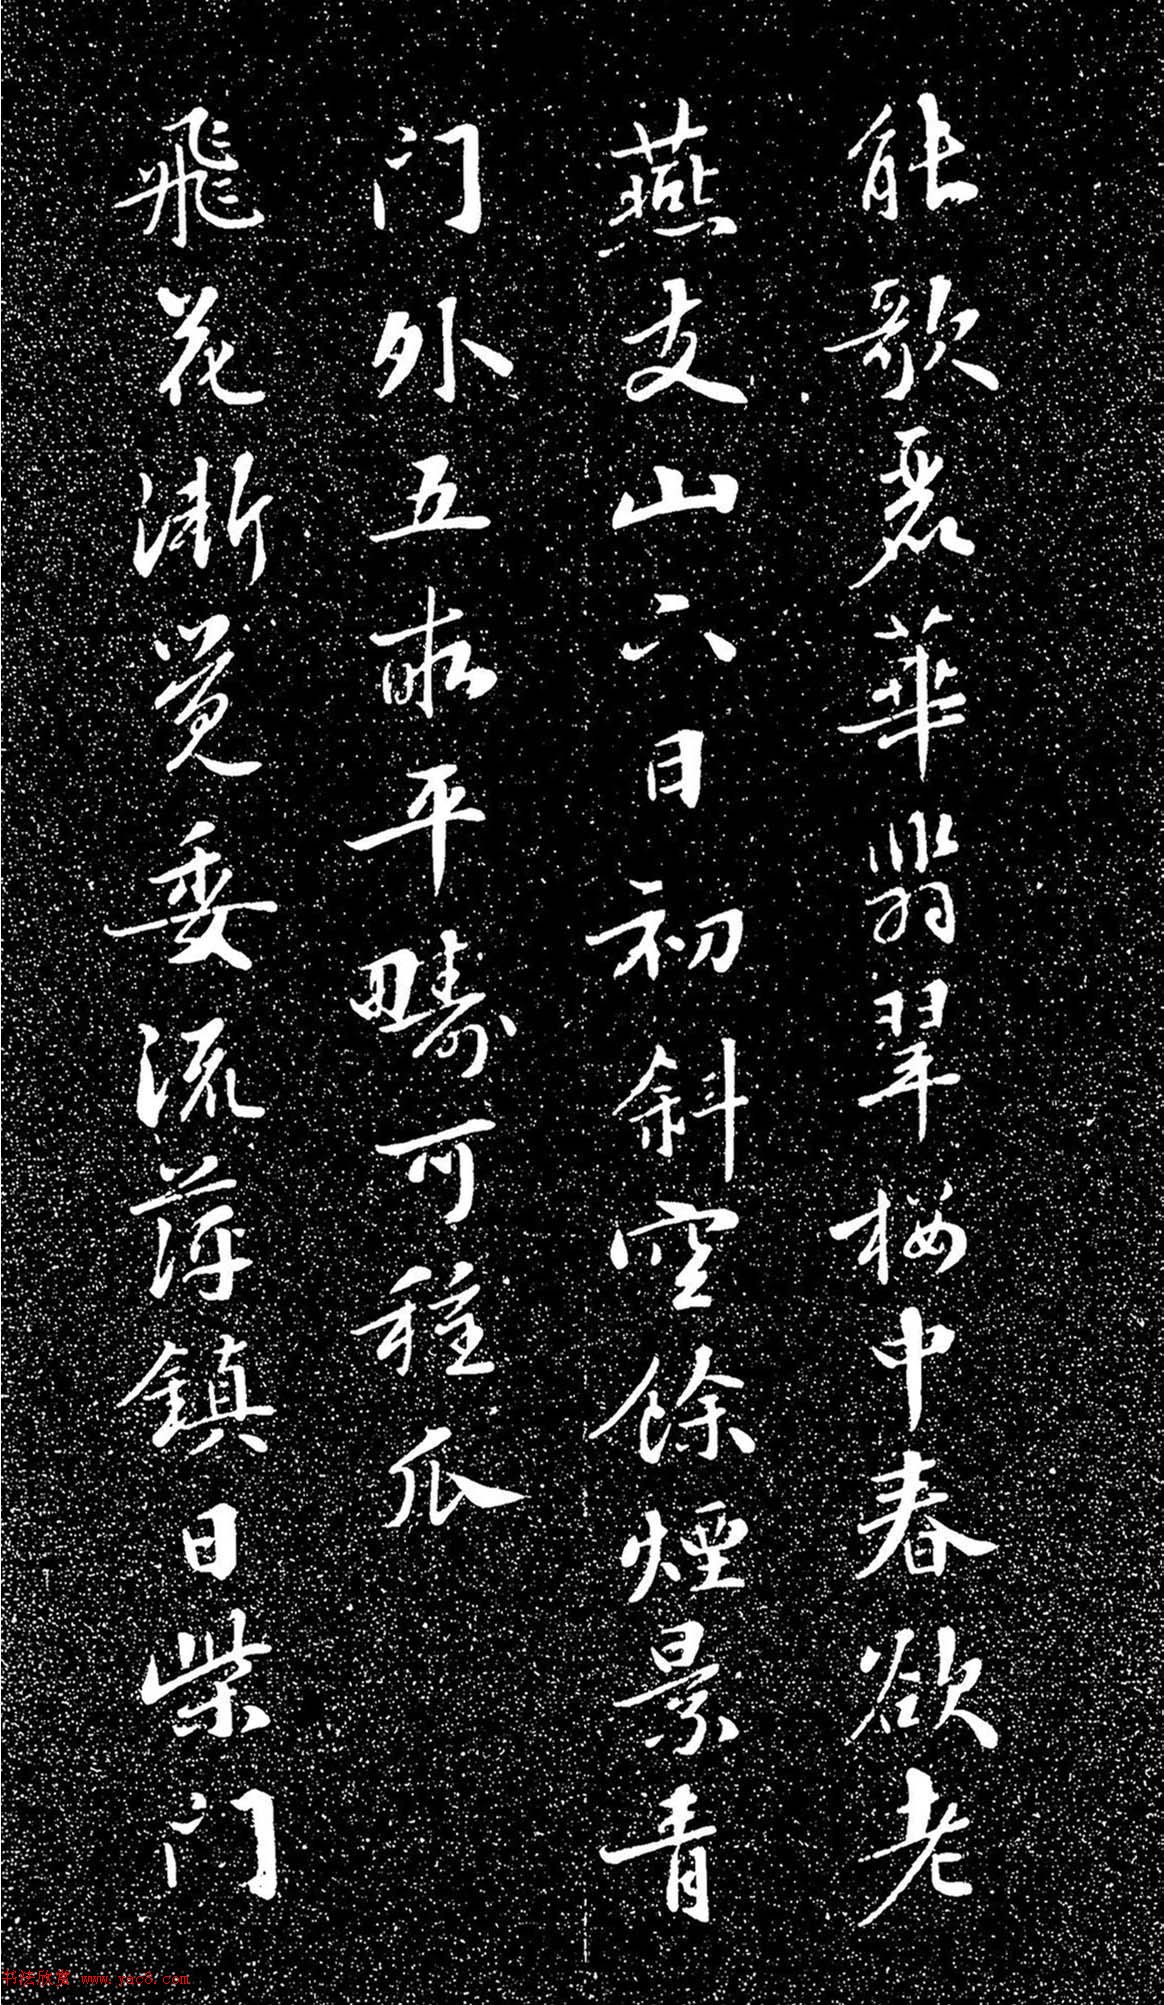 能歌麗華翡翠楼中春欲老
燕支山六日初斜空餘煙景青
门外五畝平疇可種瓜
飛花漸覓委流萍鎮日柴门
书法欣赏 www.yac8.com